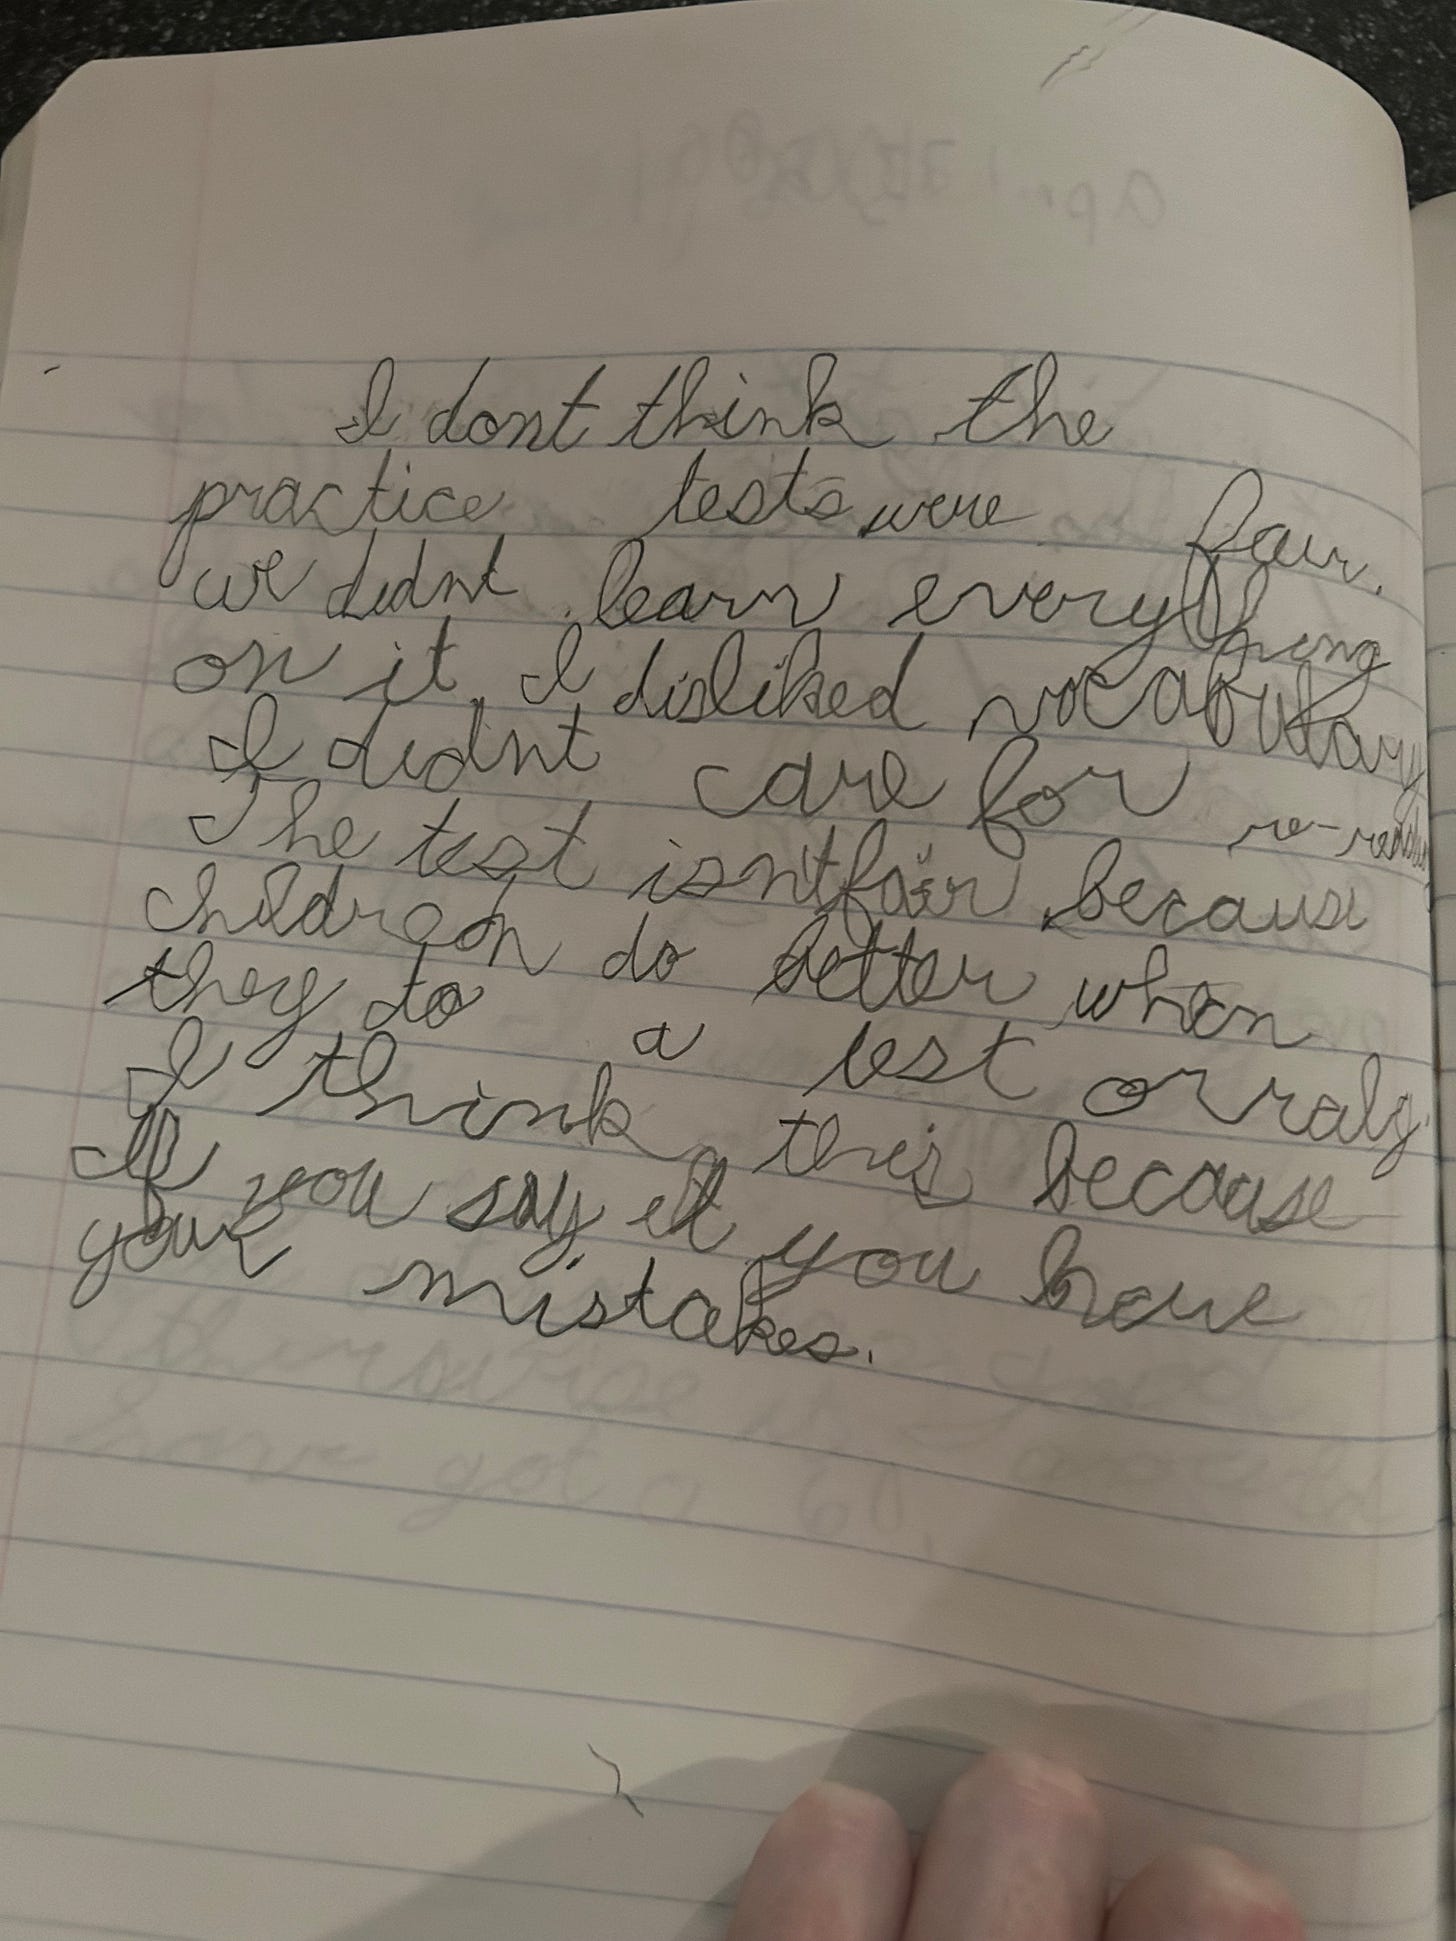 I dont think the
practice tests were fair.
we didnt learn everything
on it. I disliked vocabulary
I didnt care for
The test isnt fair because
children do better when
they do a test orraly.
I think this because
If you say it you have
your mistakes.